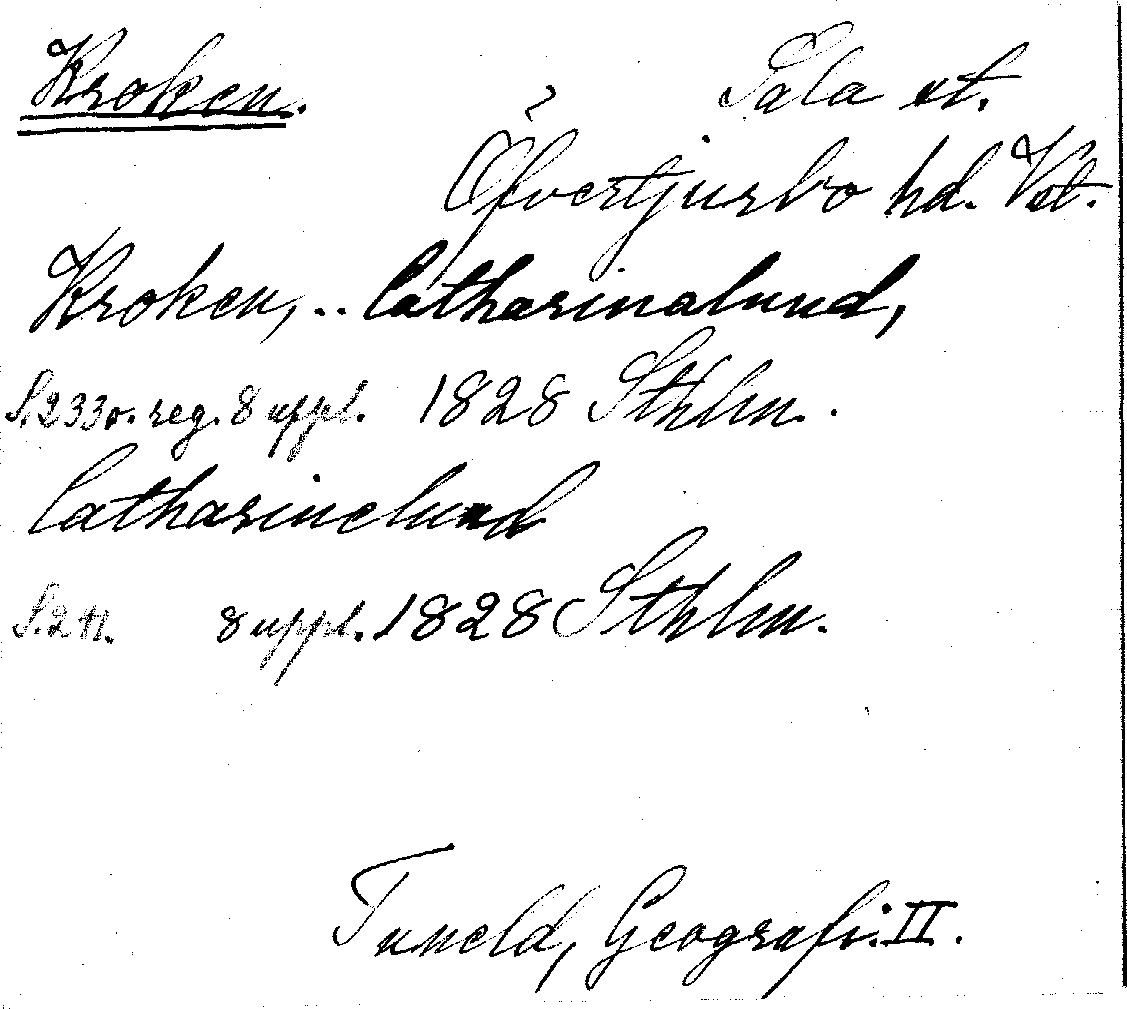 Kroken. Sala st.
Öfvertjurbo hd. Vst.
Kroken, .. Catharinalund,
S. 233 o. reg. 8 uppl. 1828 Sthlm.
Catharinelund
S. 211. 8 uppl. 1828 Sthlm.
Tuneld, Geografi. II.